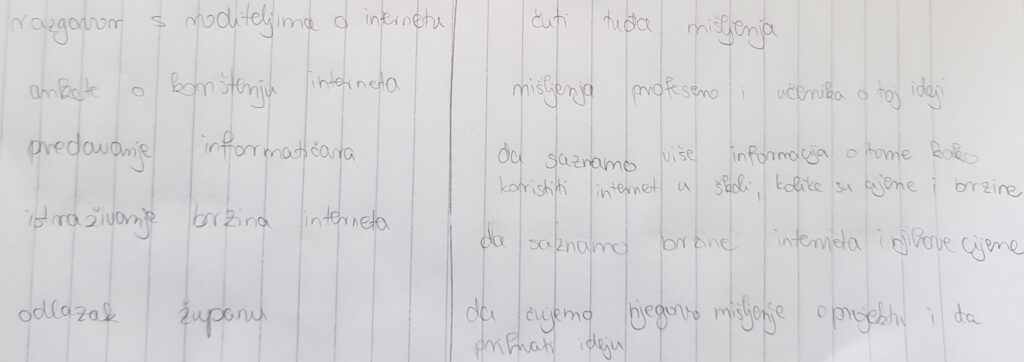 razgovor s roditeljima o internetu
čuti tuđa mišljenja
ankete o korištenju interneta
mišljenja profesora i učenika o toj ideji
predavanje informatičara
da saznamo više informacija o tome kako
koristiti internet u školi, kolike su cijene i brzine
istraživanje brzina interneta
da saznamo brzine interneta i njihove cijene
odlazak županu
da čujemo njegovo mišljenje o projektu i da
prihvati ideju